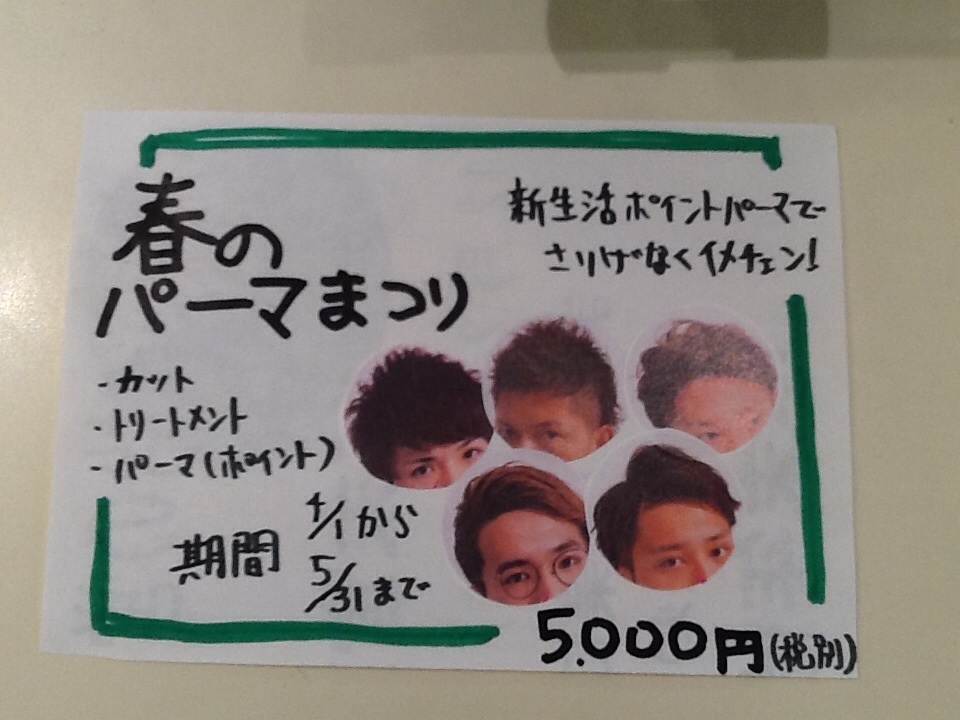 春の
パーマまつり
新生活ポイントパーマで
さりげなくイメチェン!
・カット
・トリートメント
・パーマ(ポイント)
期間
4/1から
5/31まで
5.000円(税別)